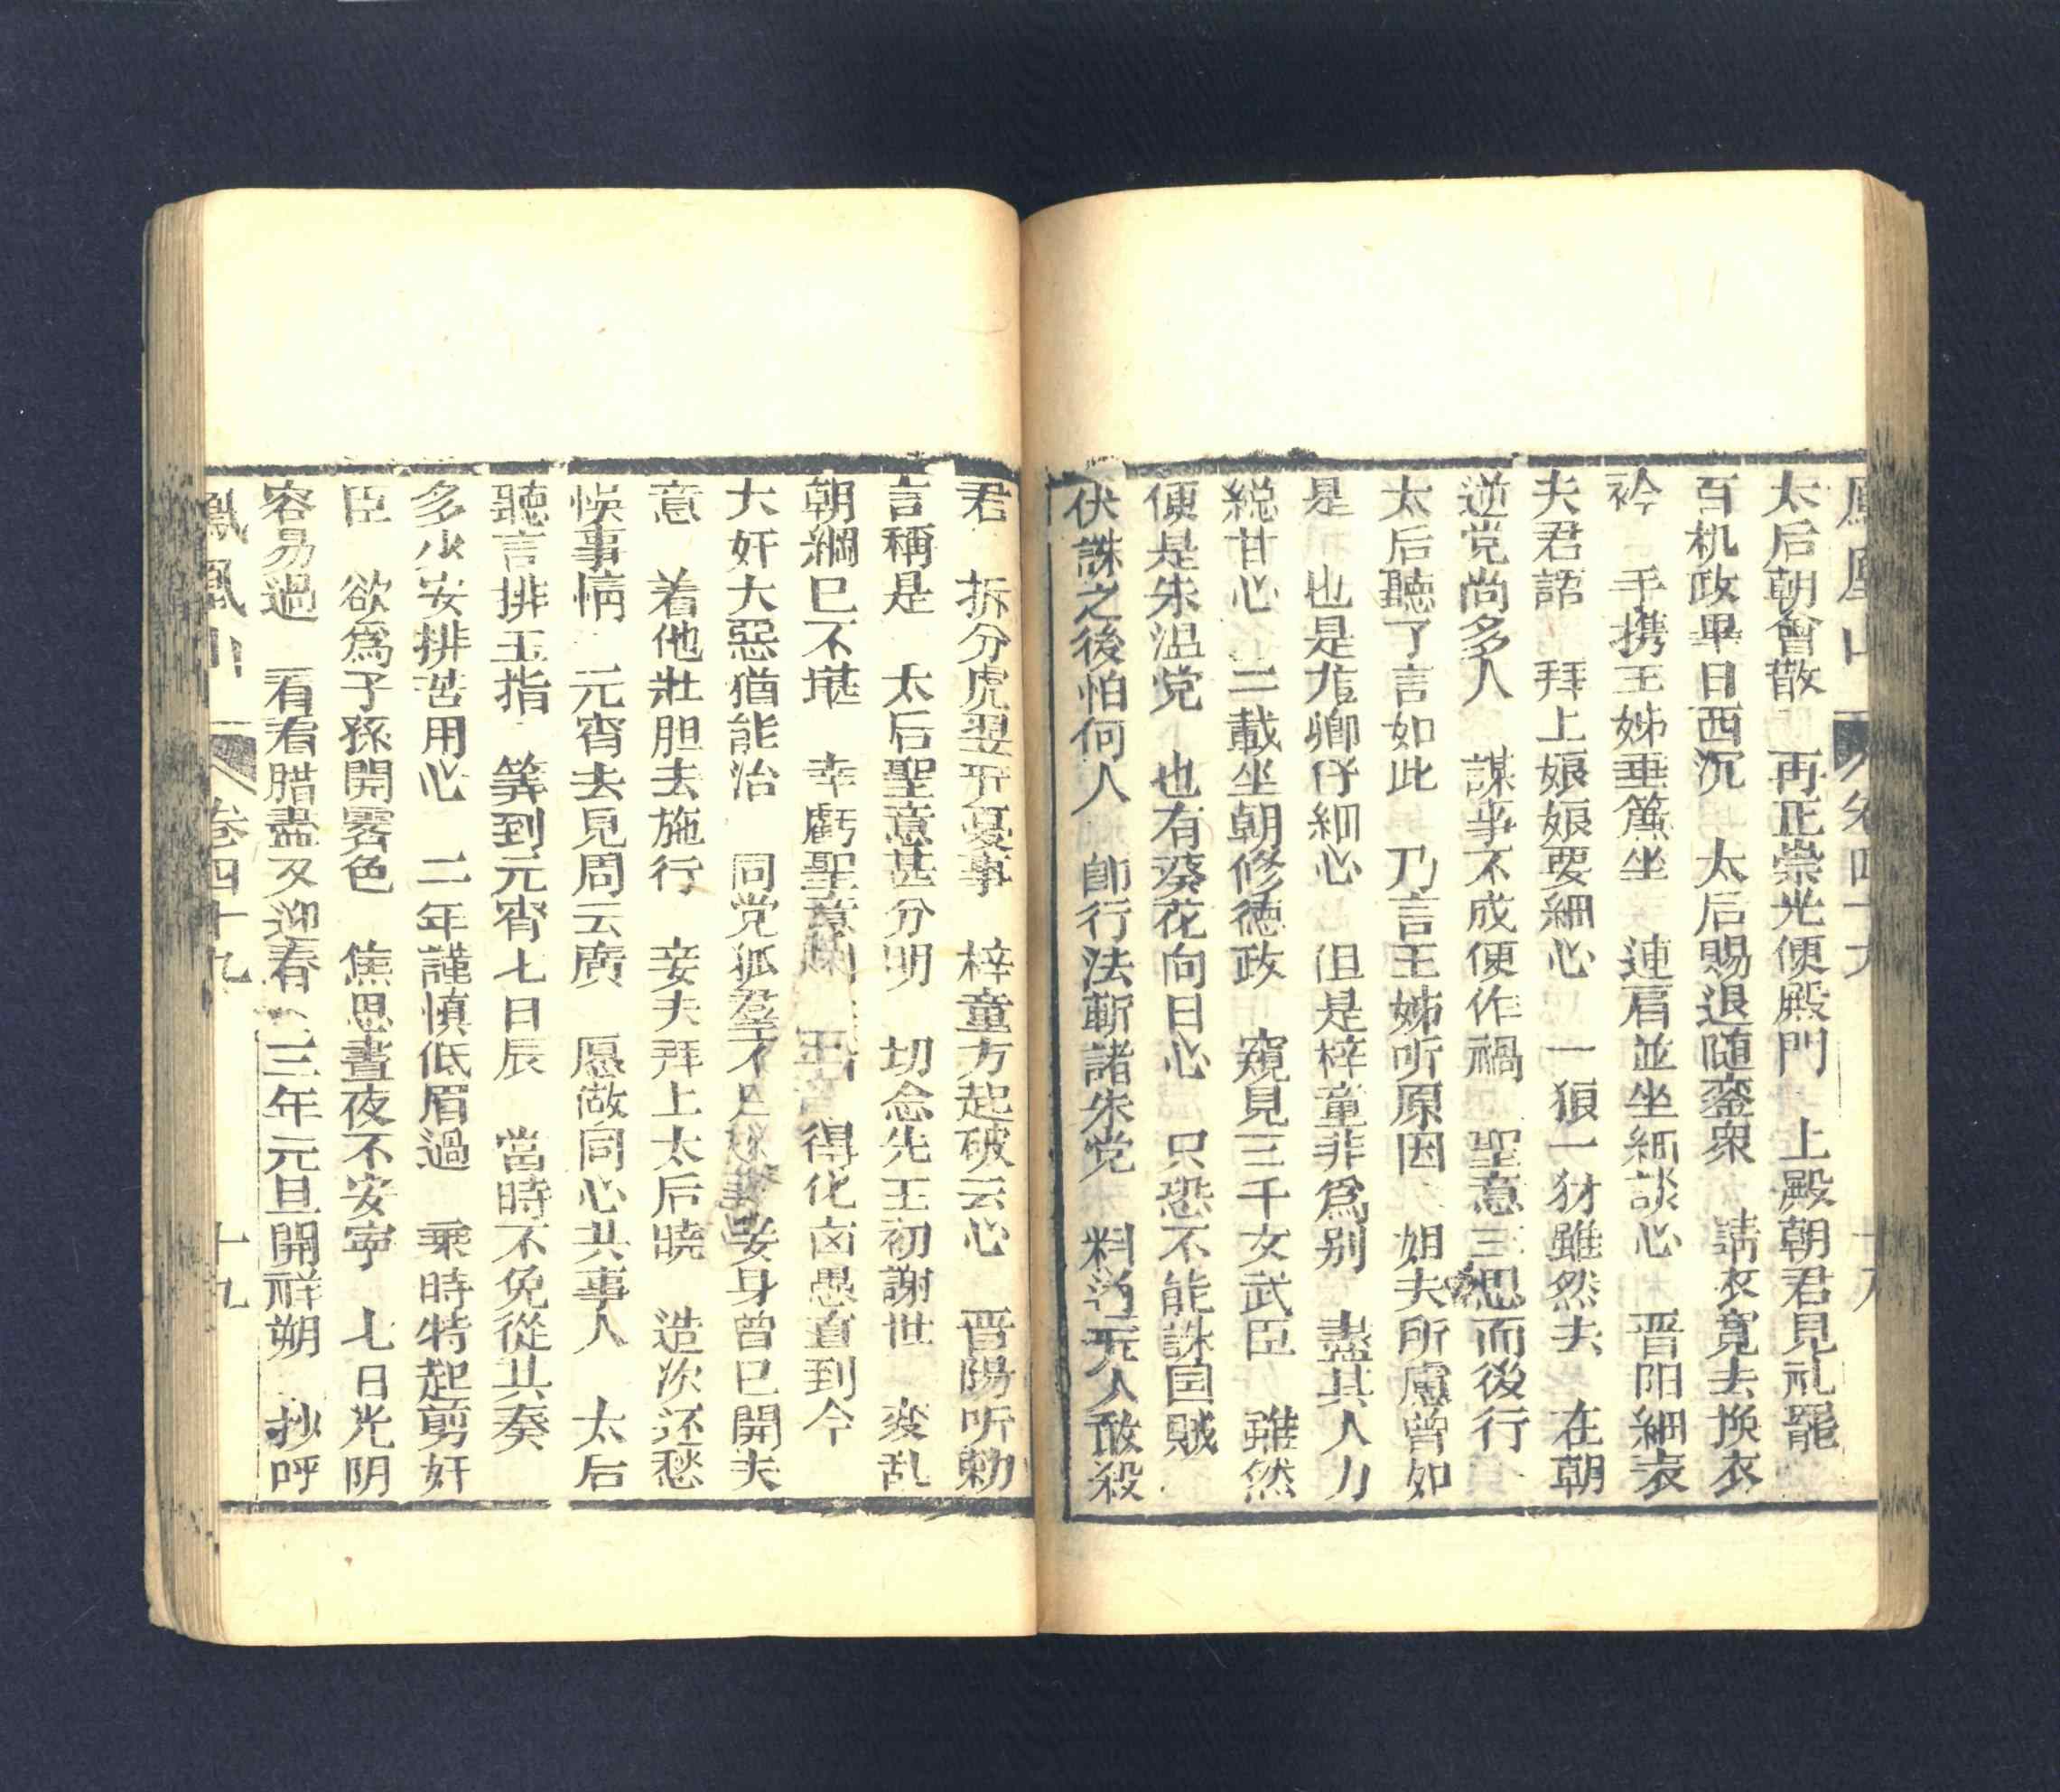 鳳凰山 卷四十九 十八
太后朝會散 再正崇光便殿門 上殿朝君見礼罷
百机政畢日西沉 太后賜退随鑾衆 請衣寬去換衣
衿 手携王姊垂簾坐 連肩並坐緬談心 晋阳細表
夫君語 拜上娘娘要細心 一狼一犲雖然去 在朝
逆党尚多人 謀事不成便作禍 聖意三思而後行
太后聽了言如此 乃言王姊听原因 姐夫所慮曾如
是 也是龙卿仔細心 但是梓童非爲别 盡其人力
総甘心 二載坐朝修德政 窺見三千女武臣 雖然
便是朱温党 也有葵花向日心 只恐不能誅国賊
伏誅之後怕何人 卽行法斬諸朱党 料汚无人敢殺
君 拆分虎翌平憂事 梓童方起破云心 晋陽听勅
言稱是 太后聖意甚分明 切念先王初謝世 変乱
朝綱已不堪 幸虧聖意 得化卤愚直到今
大奸大惡猶能治 同党狐羣不足 妾身曾已開夫
意 着他壯胆去施行 妾夫拜上太后曉 造次还愁
悞事情 元宵去見周云廣 愿做同心共事人 太后
聽言排玉指 筭到元宵七日辰 當時不免從其奏
多少安排苦用心 二年謹慎低眉過 乘時特起剪奸
臣 欲爲子孫開霽色 焦思晝夜不安寧 七日光阴
容易過 看看腊盡又迎春 三年元旦開祥朔 抄呼
鳳凰山 卷四十九 十九